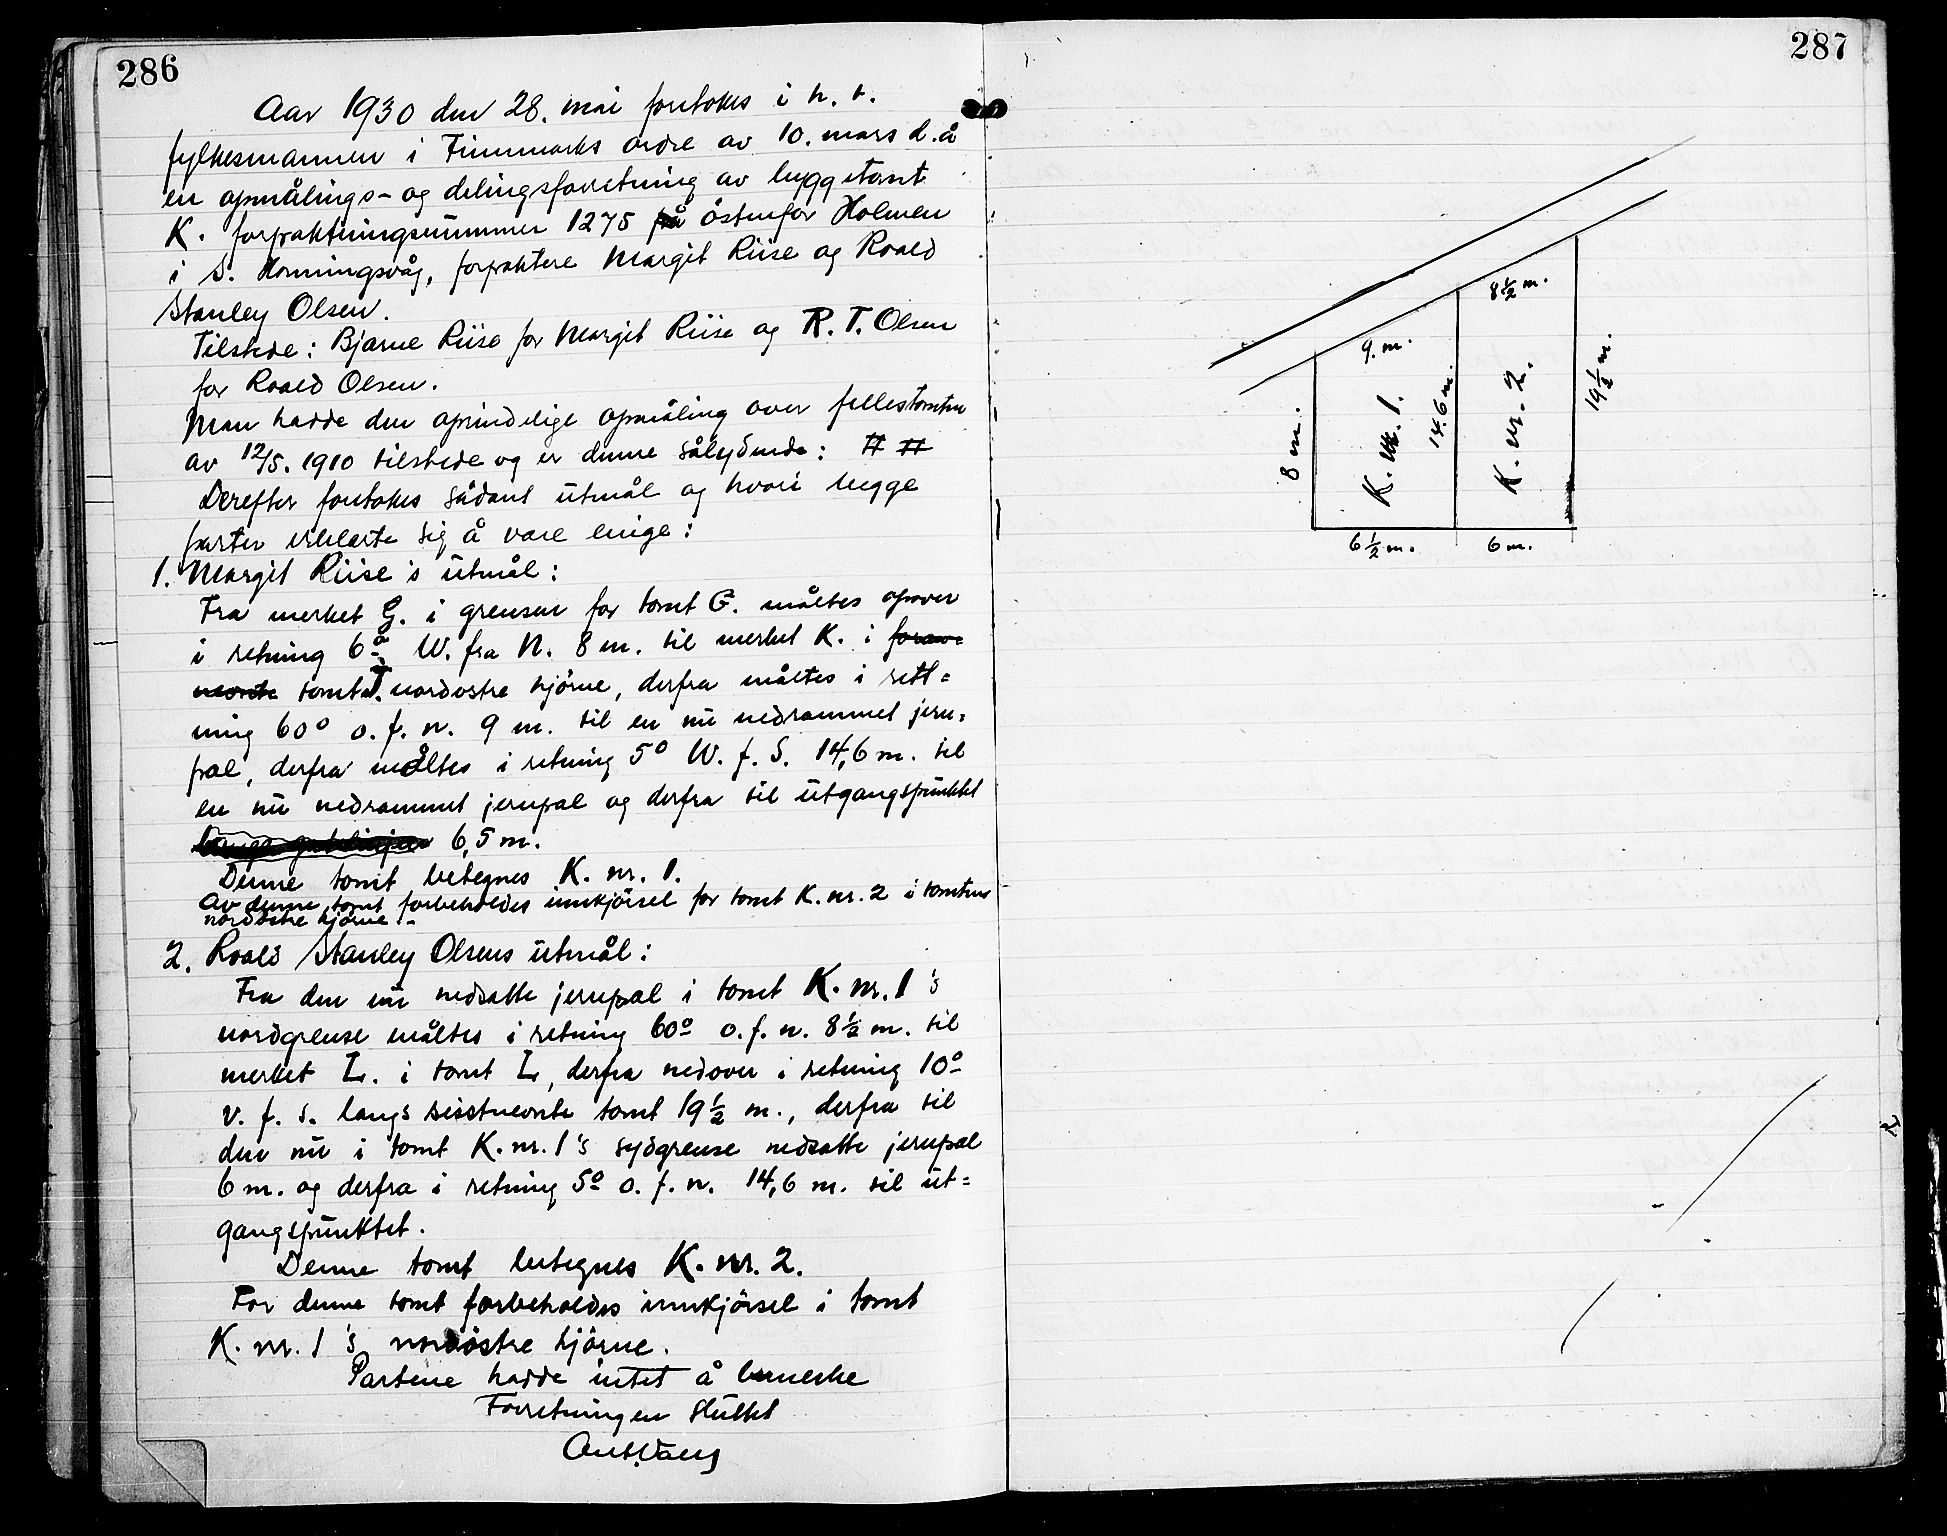 286
Aar 1930 den 28. mai foretokes i h. t.
fylkesmannen i Finnmarks ordre av 10. mars d. å
en opmålings- og delingsforretning av byggetomt
K. forpaktningsnummer 1275 på östenfor Holmen
i S. Honningsvåg, forpaktere Margit Riise og Roald
Stanley Olsen.
Tilstede: Bjarne Riise for Margit Riise og R. T. Olsen
for Roald Olsen.
Man hadde den oprindelige opmåling over fellestomten
av 12/5. 1910 tilstede og er denne sålydende: # #
Derefter foretokes sådant utmål og hvori begge
parter erklærte sig å være enige:
1. Margit Riise's utmål:
Fra merket G. i grensen for tomt G. måltes opover
i retning 6° W. fra N. 8 m. til merket K. i forav-
nevnte tomt J. nordostre hjörne, derfra måltes i rett=
ning 60° o. f. n. 9 m. til en nu nedrammet jern=
pæl, derfra måltes i retning 5° W. f. S. 14,6 m. til
en nu nedrammet jernpæl og derfra til utgangspunktet
6,5 m.
Denne tomt betegnes K. nr. 1.
Av denne tomt forbeholdes innkjörsel for tomt K. nr. 2 i tomtens
nordöstre hjörne.-
2. Roald Stanley Olsens utmål:
Fra den nu nedsatte jernpæl i tomt K. nr. 1's
nordgrense måltes i retning 60° o. f. n. 8 1/2 m. til
merket L. i tomt L, derfra nedover i retning 10°
v. f. s. langs sisstnevnte tomt 19 1/2 m., derfra til
den nu i tomt K. nr. 1's sydgrense nedsatte jernpæl
6 m. og derfra i retning 5° o. f. n. 14,6 m. til ut=
gangspunktet.
Denne tomt betegnes K. nr. 2.
For denne tomt forbeholdes innkjörsel i tomt
K. nr. 1's nordöstre hjörne.
Partene hadde intet å bemerke
Forretningen sluttet
287
8 1/2 m.
9. m.
8 m.
K. nr. 1.
14.6 m.
K. nr. 2.
19 1/2 m.
6 1/2 m.
6 m.